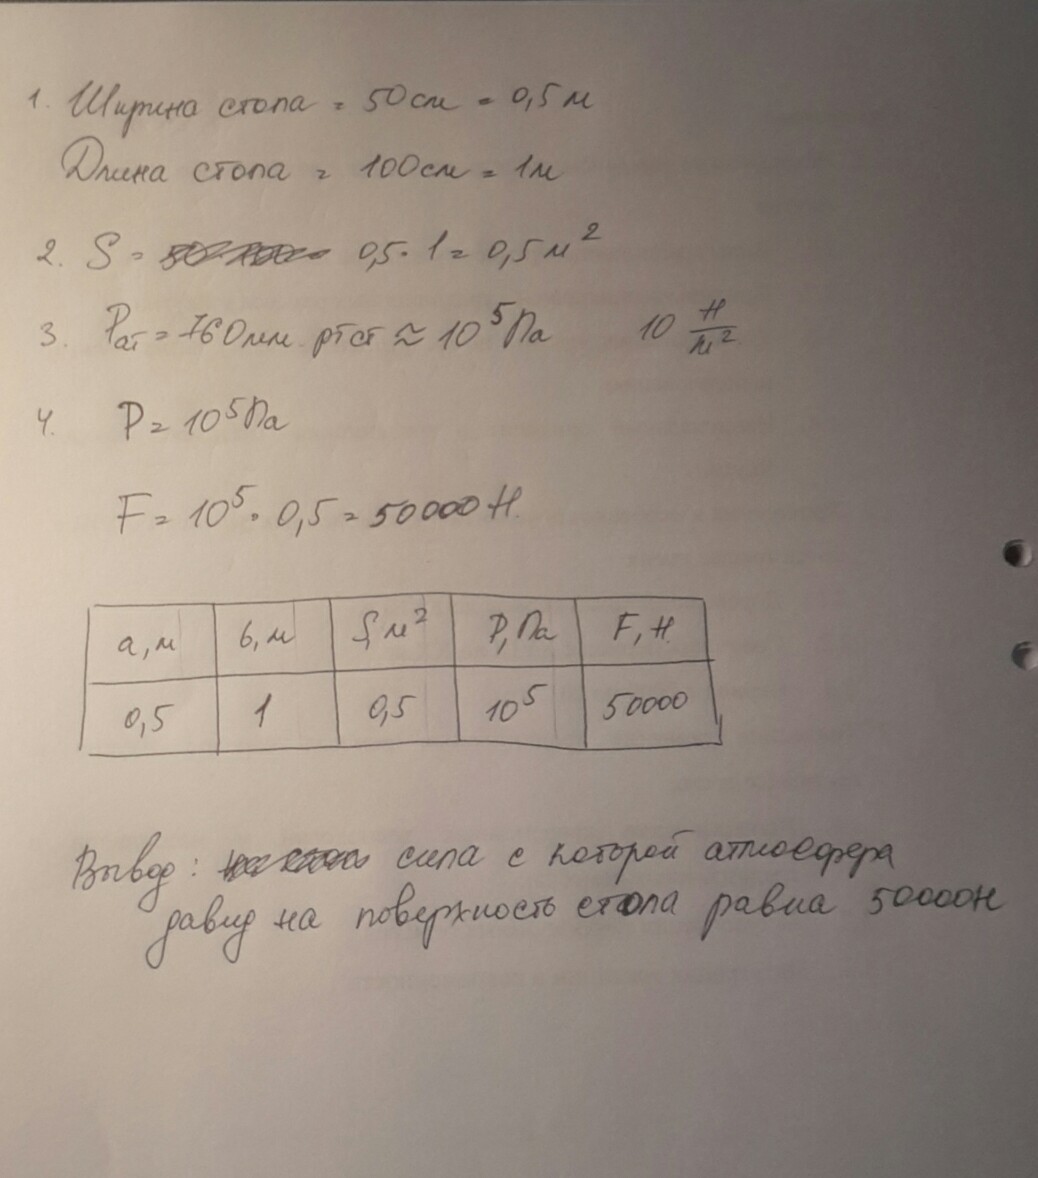 1. Ширина стола = 50см = 0,5м
Длина стола = 100см = 1м
2. S = 0,5 · 1 = 0,5 м²
3. Pат = 760мм ртст ≈ 10⁵Па 10 Н/м²
4. P = 10⁵Па
F = 10⁵ · 0,5 = 50000 Н.
а, м в, м S, м² P, Па F, Н
0,5 1 0,5 10⁵ 50000
Вывод: сила с которой атмосфера
давид на поверхность стола равна 50000Н